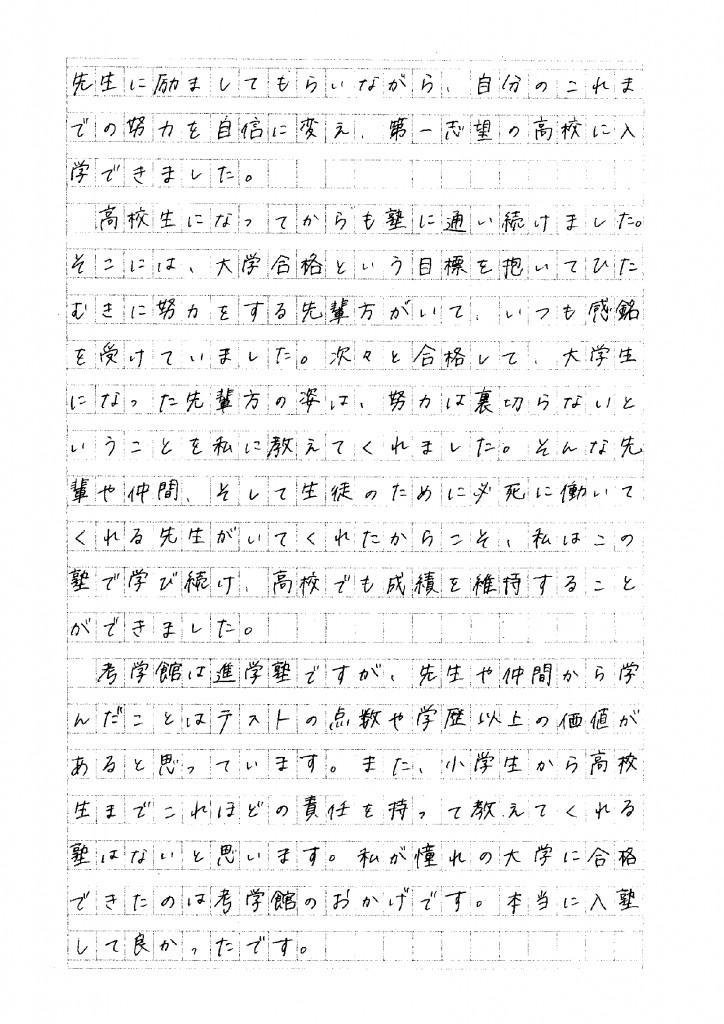 先生に励ましてもらいながら、自分のこれま
での努力を自信に変え、第一志望の高校に入
学できました。
高校生になってからも塾に通い続けました。
そこには、大学合格という目標を抱いてひた
むきに努力をする先輩方がいて、いつも感銘
を受けていました。次々と合格して、大学生
になった先輩方の姿は、努力は裏切らないと
いうことを私に教えてくれました。そんな先
輩や仲間、そして生徒のために必死に働いて
くれる先生がいてくれたからこそ、私はこの
塾で学び続け、高校でも成績を維持すること
ができました。
考学館は進学塾ですが、先生や仲間から学
んだことはテストの点数や学歴以上の価値が
あると思っています。また、小学生から高校
生までこれほどの責任を持って教えてくれる
塾はないと思います。私が憧れの大学に合格
できたのは考学館のおかげです。本当に入塾
して良かったです。